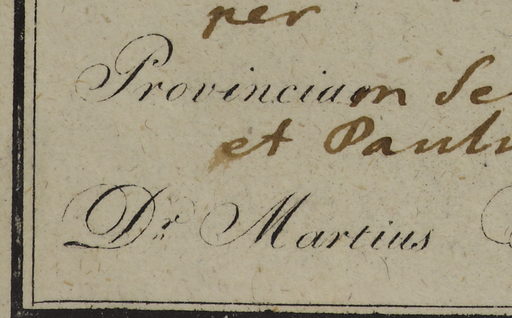 per
Provinciam Se
et Paulu
Dr. Martius